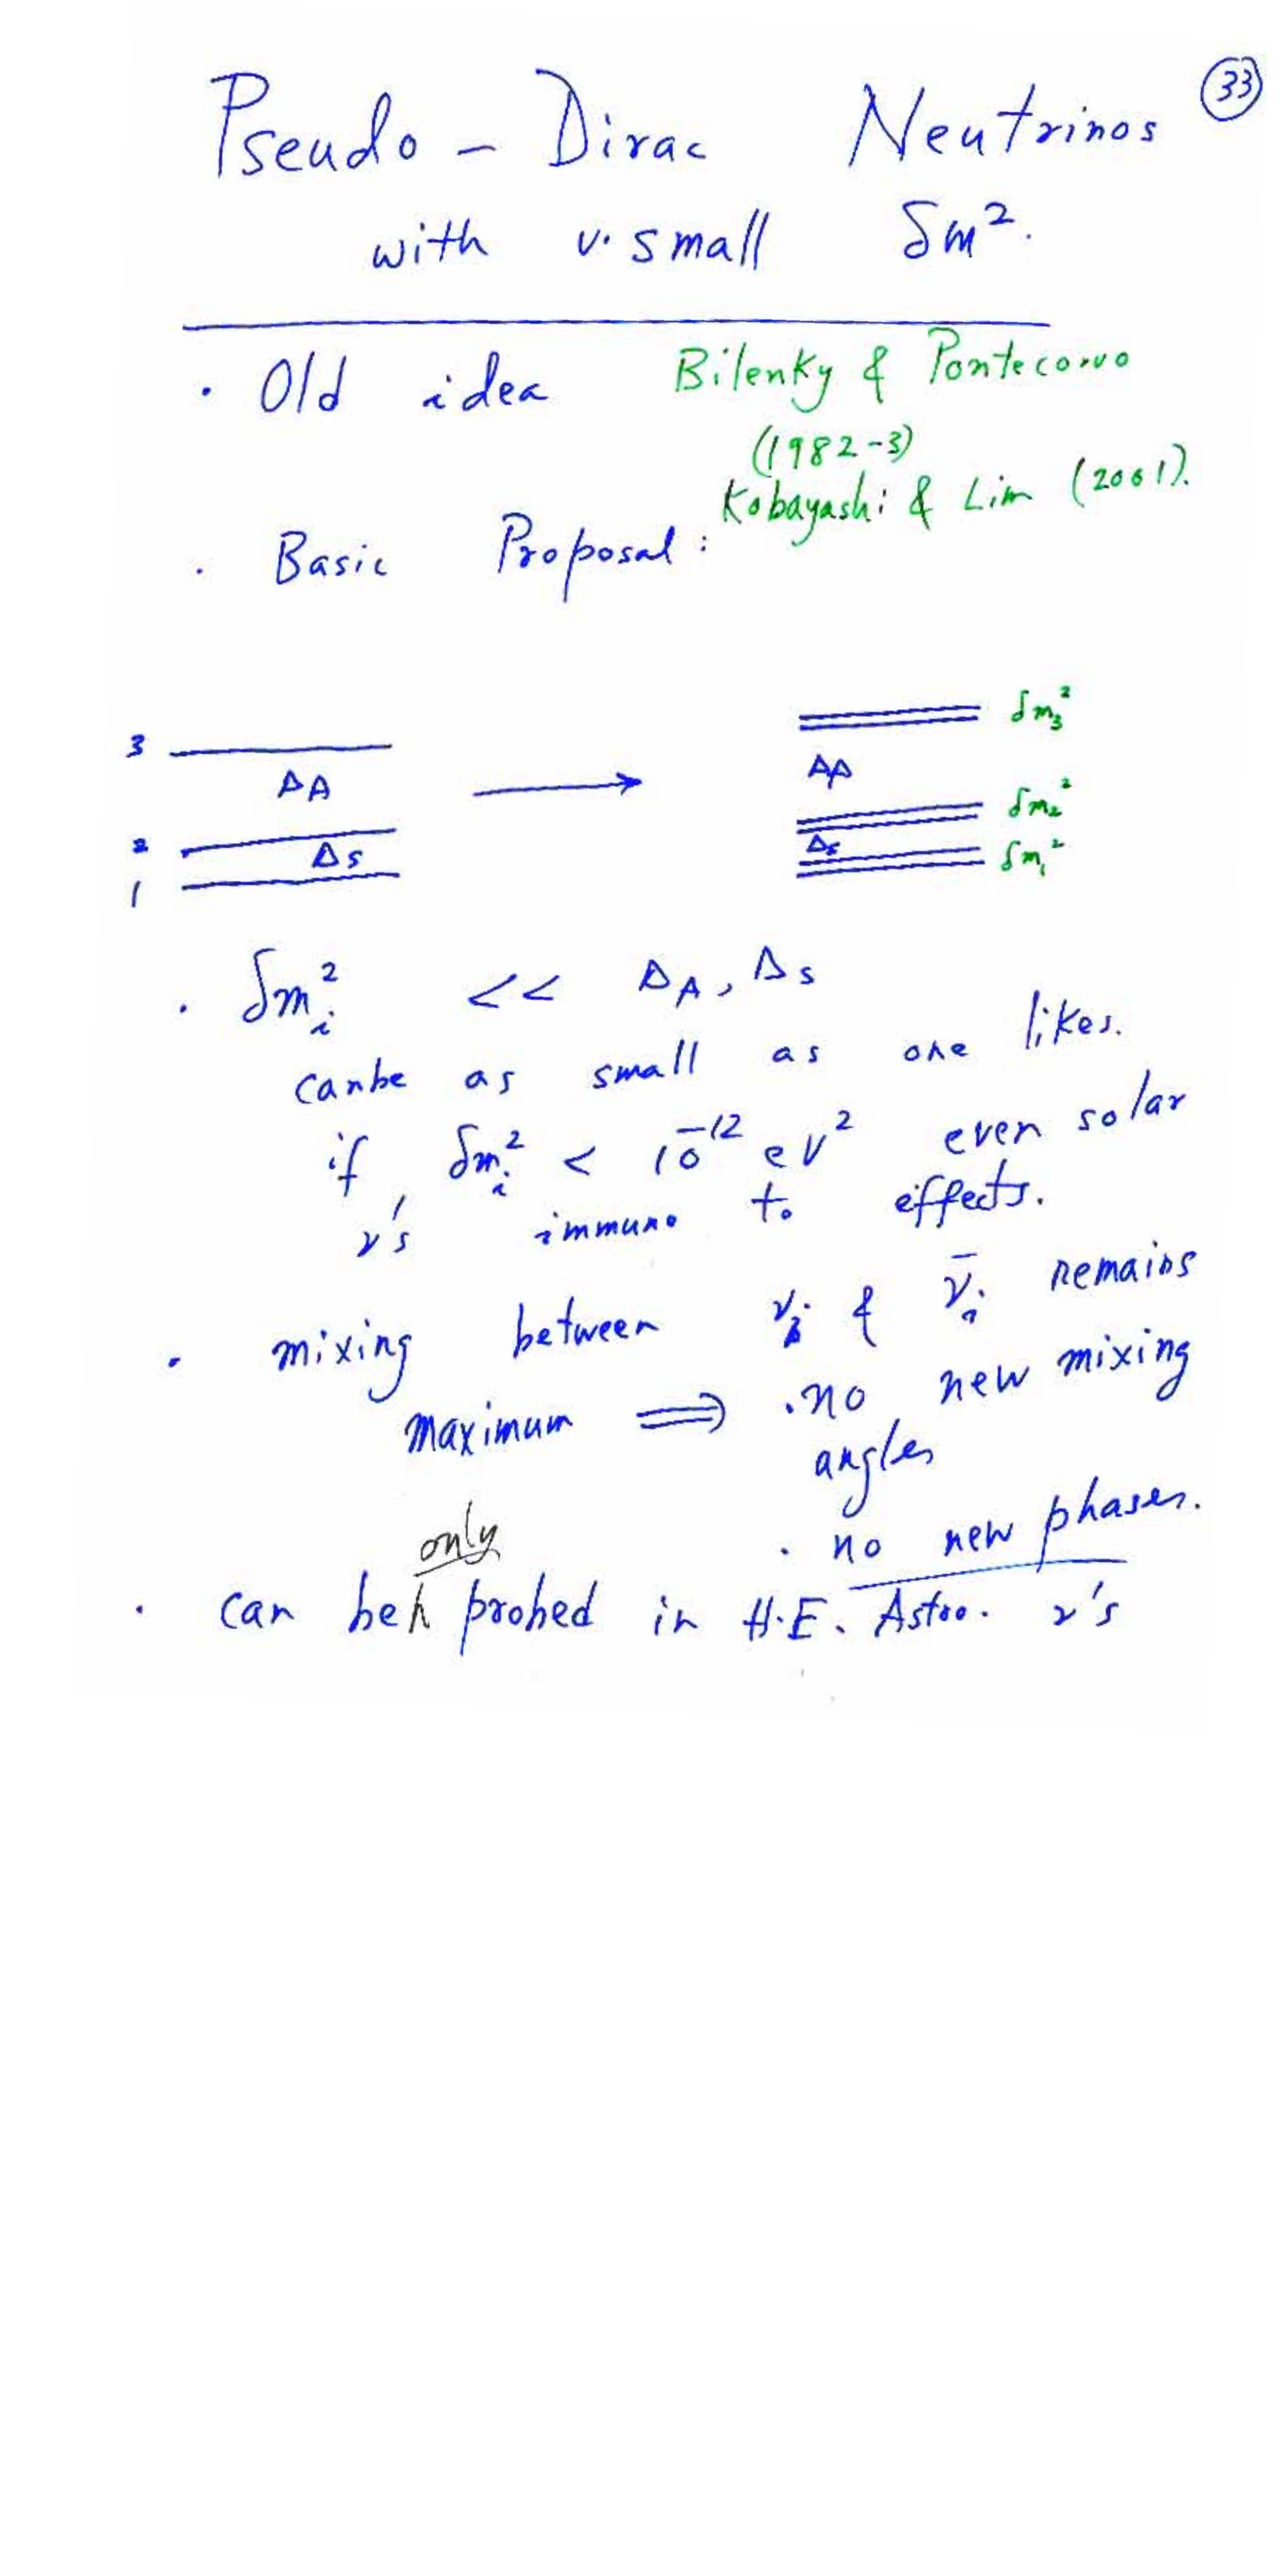 33
Pseudo - Dirac Neutrinos
with v. small δm².
· Old idea Bilenky & Pontecorvo
(1982-3)
Kobayashi & Lim (2001).
· Basic Proposal:
3
ΔA
2
Δs
1
δm₃²
ΔA
δm₂²
Δs
δm₁²
· δmᵢ² << Δ_A, Δ_S
can be as small as one likes.
if δmᵢ² < 10⁻¹² eV² even solar
ν's immune to effects.
· mixing between νᵢ & ν̄ᵢ remains
maximum ⟹ · no new mixing
angles
· no new phases.
only
· can be probed in H.E. Astro. ν's